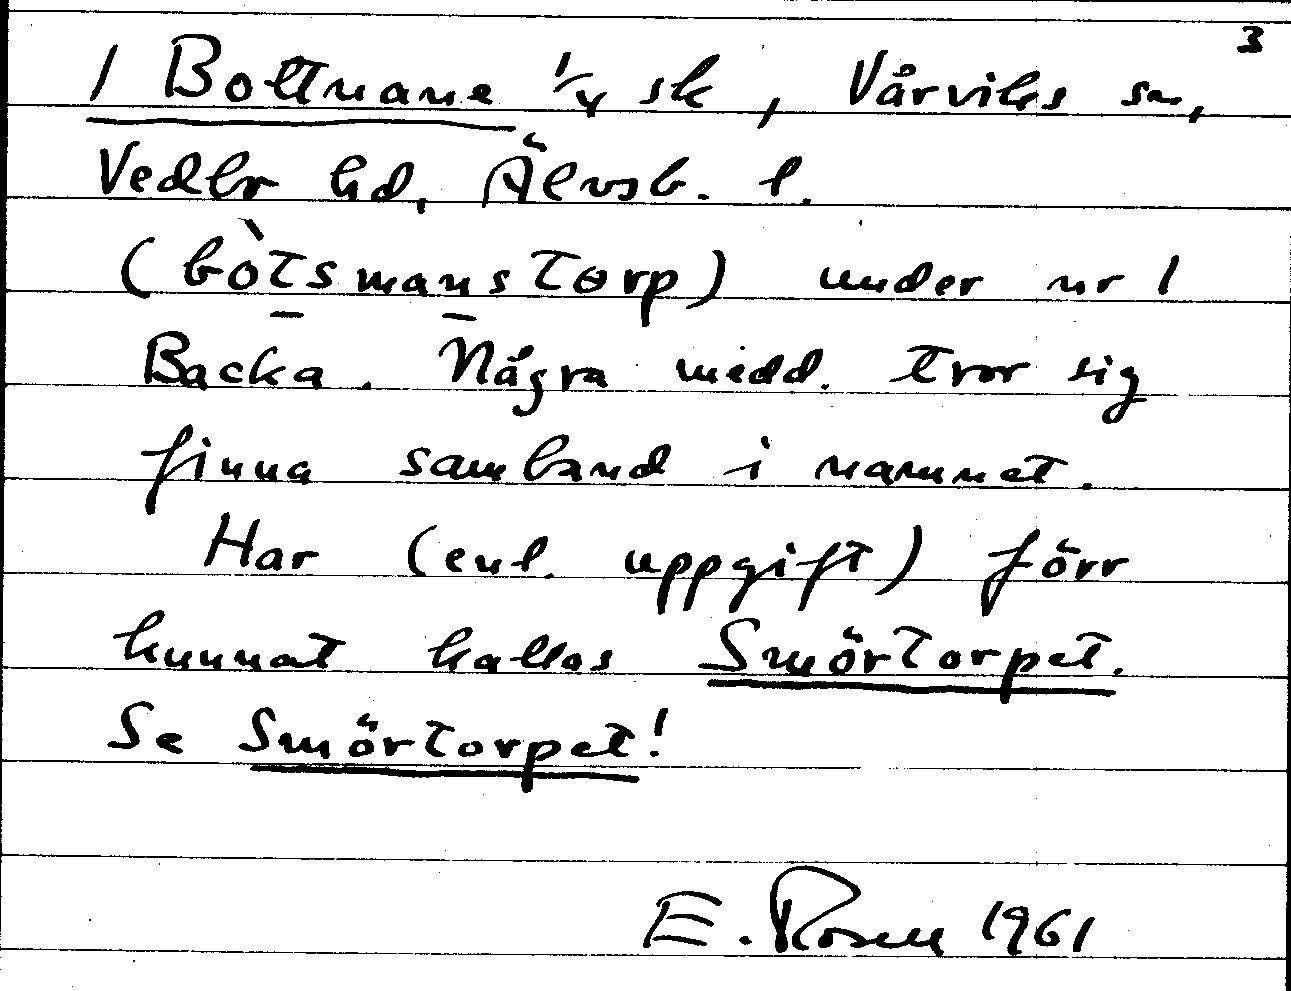 3
1 Bottnane 1/4 sk, Vårviks sn,
Vedbo hd, Älvsb. l.
(bòtsmanstorp) under nr 1
Backa. Några medd. tror sig
finna samband i namnet.
Har (enl. uppgift) förr
kunnat kallas Smörtorpet.
Se Smörtorpet!
E. Rosen 1961